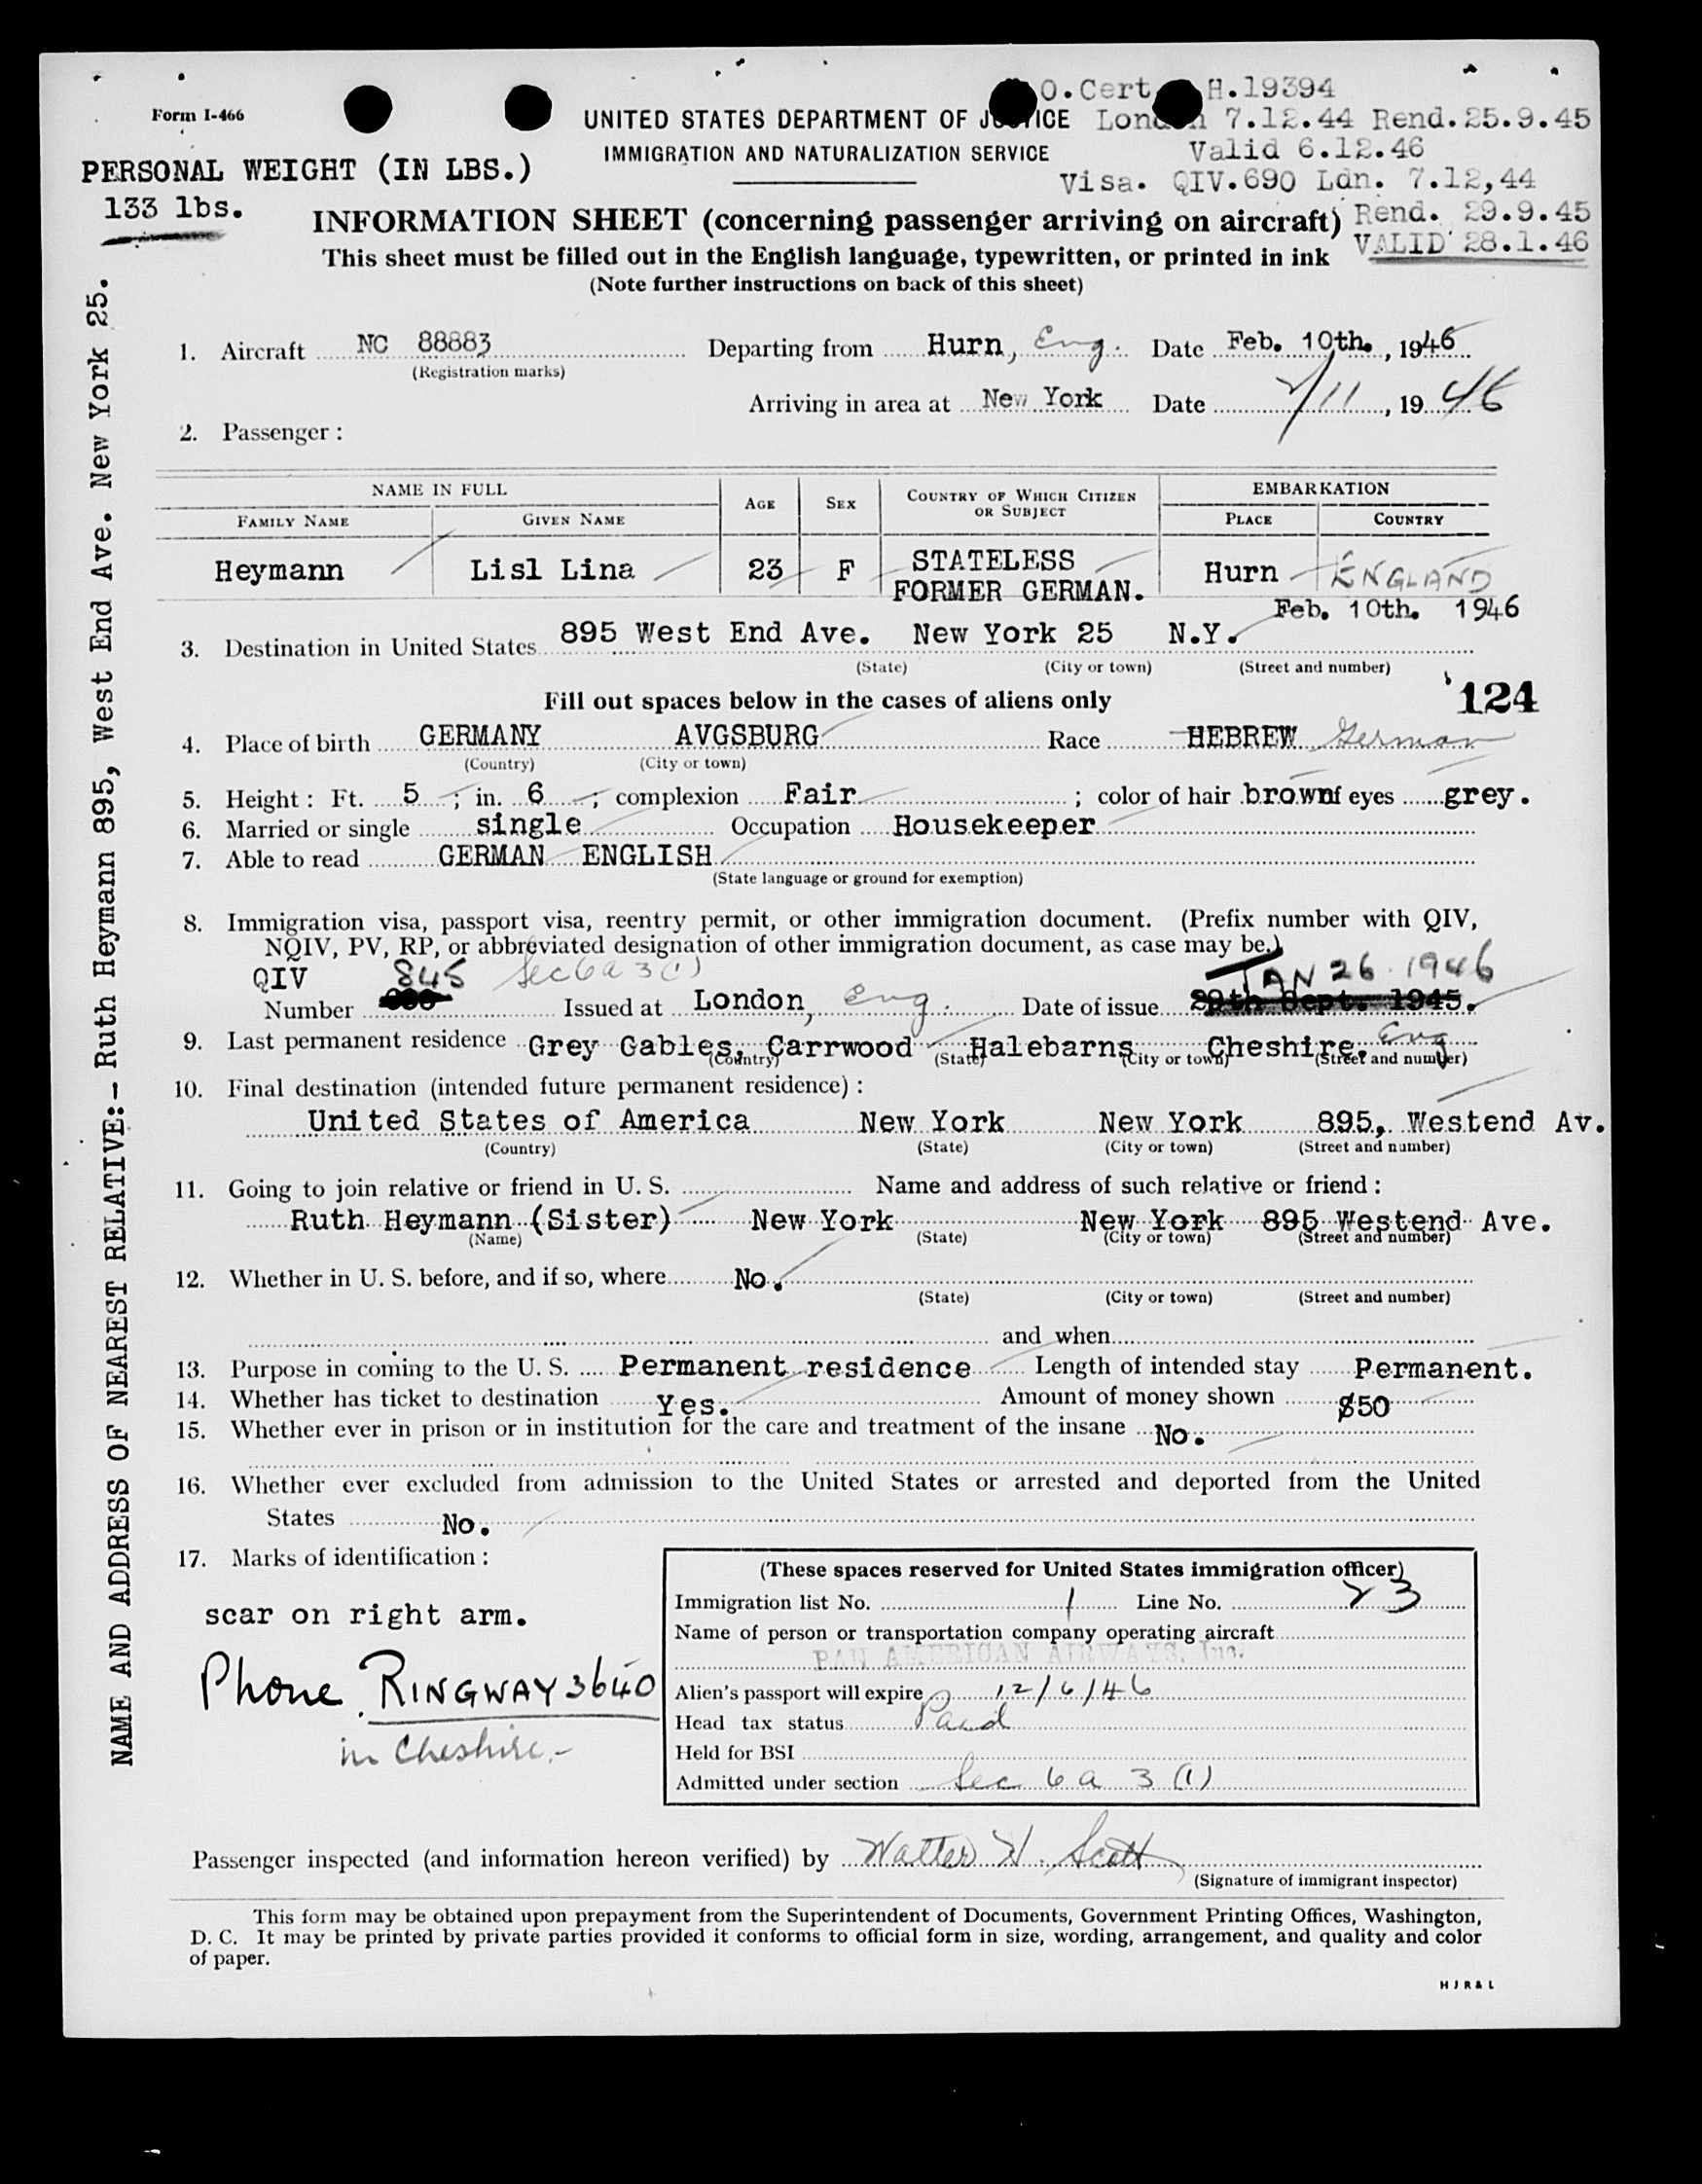 Form I-466
O. Cert H.19394
UNITED STATES DEPARTMENT OF JUSTICE London 7.12.44 Rend.25.9.45
IMMIGRATION AND NATURALIZATION SERVICE Valid 6.12.46
PERSONAL WEIGHT (IN LBS.) Visa. QIV.690 Ldn. 7.12,44
133 lbs.
INFORMATION SHEET (concerning passenger arriving on aircraft) Rend. 29.9.45
VALID 28.1.46
This sheet must be filled out in the English language, typewritten, or printed in ink
(Note further instructions on back of this sheet)
1. Aircraft NC 88883 Departing from Hurn, Eng. Date Feb. 10th. , 1946
(Registration marks)
Arriving in area at New York Date 2/11, 1946
2. Passenger :
NAME IN FULL AGE SEX COUNTRY OF WHICH CITIZEN OR SUBJECT EMBARKATION
FAMILY NAME GIVEN NAME PLACE COUNTRY
Heymann Lisl Lina 23 F STATELESS Hurn ENGLAND
FORMER GERMAN.
Feb. 10th. 1946
3. Destination in United States 895 West End Ave. New York 25 N.Y.
(State) (City or town) (Street and number)
Fill out spaces below in the cases of aliens only 124
4. Place of birth GERMANY AVGSBURG Race HEBREW German
(Country) (City or town)
5. Height : Ft. 5 ; in. 6 ; complexion Fair ; color of hair brown of eyes grey.
6. Married or single single Occupation Housekeeper
7. Able to read GERMAN ENGLISH
(State language or ground for exemption)
8. Immigration visa, passport visa, reentry permit, or other immigration document. (Prefix number with QIV,
NQIV, PV, RP, or abbreviated designation of other immigration document, as case may be.)
QIV 845 Sec 6a 3(1) JAN 26 1946
Number Issued at London, Eng. Date of issue 29th Sept. 1945.
9. Last permanent residence Grey Gables, Carrwood Halebarns Cheshire. Eng
(Country) (State) (City or town) (Street and number)
10. Final destination (intended future permanent residence) :
United States of America New York New York 895, Westend Av.
(Country) (State) (City or town) (Street and number)
11. Going to join relative or friend in U. S. Name and address of such relative or friend :
Ruth Heymann (Sister) New York New York 895 Westend Ave.
(Name) (State) (City or town) (Street and number)
12. Whether in U. S. before, and if so, where No.
(State) (City or town) (Street and number)
and when
13. Purpose in coming to the U. S. Permanent residence Length of intended stay Permanent.
14. Whether has ticket to destination Yes. Amount of money shown $50
15. Whether ever in prison or in institution for the care and treatment of the insane No.
16. Whether ever excluded from admission to the United States or arrested and deported from the United
States No.
17. Marks of identification :
scar on right arm.
Phone RINGWAY 3640
in Cheshire.-
(These spaces reserved for United States immigration officer)
Immigration list No. 1 Line No. 23
Name of person or transportation company operating aircraft
PAN AMERICAN AIRWAYS, Inc.
Alien's passport will expire 12/6/46
Head tax status Paid
Held for BSI
Admitted under section Sec 6a 3 (1)
Passenger inspected (and information hereon verified) by Walter H. Scott
(Signature of immigrant inspector)
This form may be obtained upon prepayment from the Superintendent of Documents, Government Printing Offices, Washington,
D. C. It may be printed by private parties provided it conforms to official form in size, wording, arrangement, and quality and color
of paper.
H J R & L
NAME AND ADDRESS OF NEAREST RELATIVE:- Ruth Heymann 895, West End Ave. New York 25.